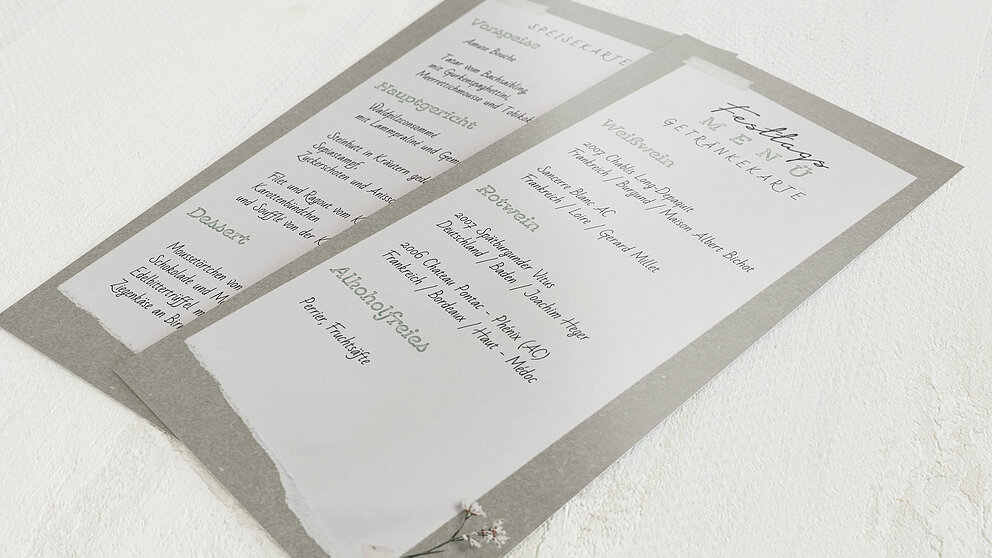 SPEISEKARTE
Vorspeise
Amuse Bouche
Tatar vom Bachsaibling,
mit Gurkenspaghettini,
Meerrettichmousse und
Hauptgericht
Waldpilzconsommé
mit Lammpraline und
Steinbutt in Kräutern
Sepiastampf,
Zuckerschoten und
Filet und Ragout vom
Karottenbündchen
und Soufflé von der
Dessert
Moussetörtchen von
Schokolade und
Edelbittertrüffel
Ziegenkäse an
Festtags
MENÜ
GETRÄNKEKARTE
Weißwein
2007 Chablis Long-Depaquit
Frankreich / Burgund / Maison Albert Bichot
Sancerre Blanc AC
Frankreich / Loire / Gerard Millet
Rotwein
2007 Spätburgunder Vitus
Deutschland / Baden / Joachim Heger
2006 Chateau Pontac - Phénix (AC)
Frankreich / Bordeaux / Haut - Médoc
Alkoholfreies
Perrier, Fruchtsäfte